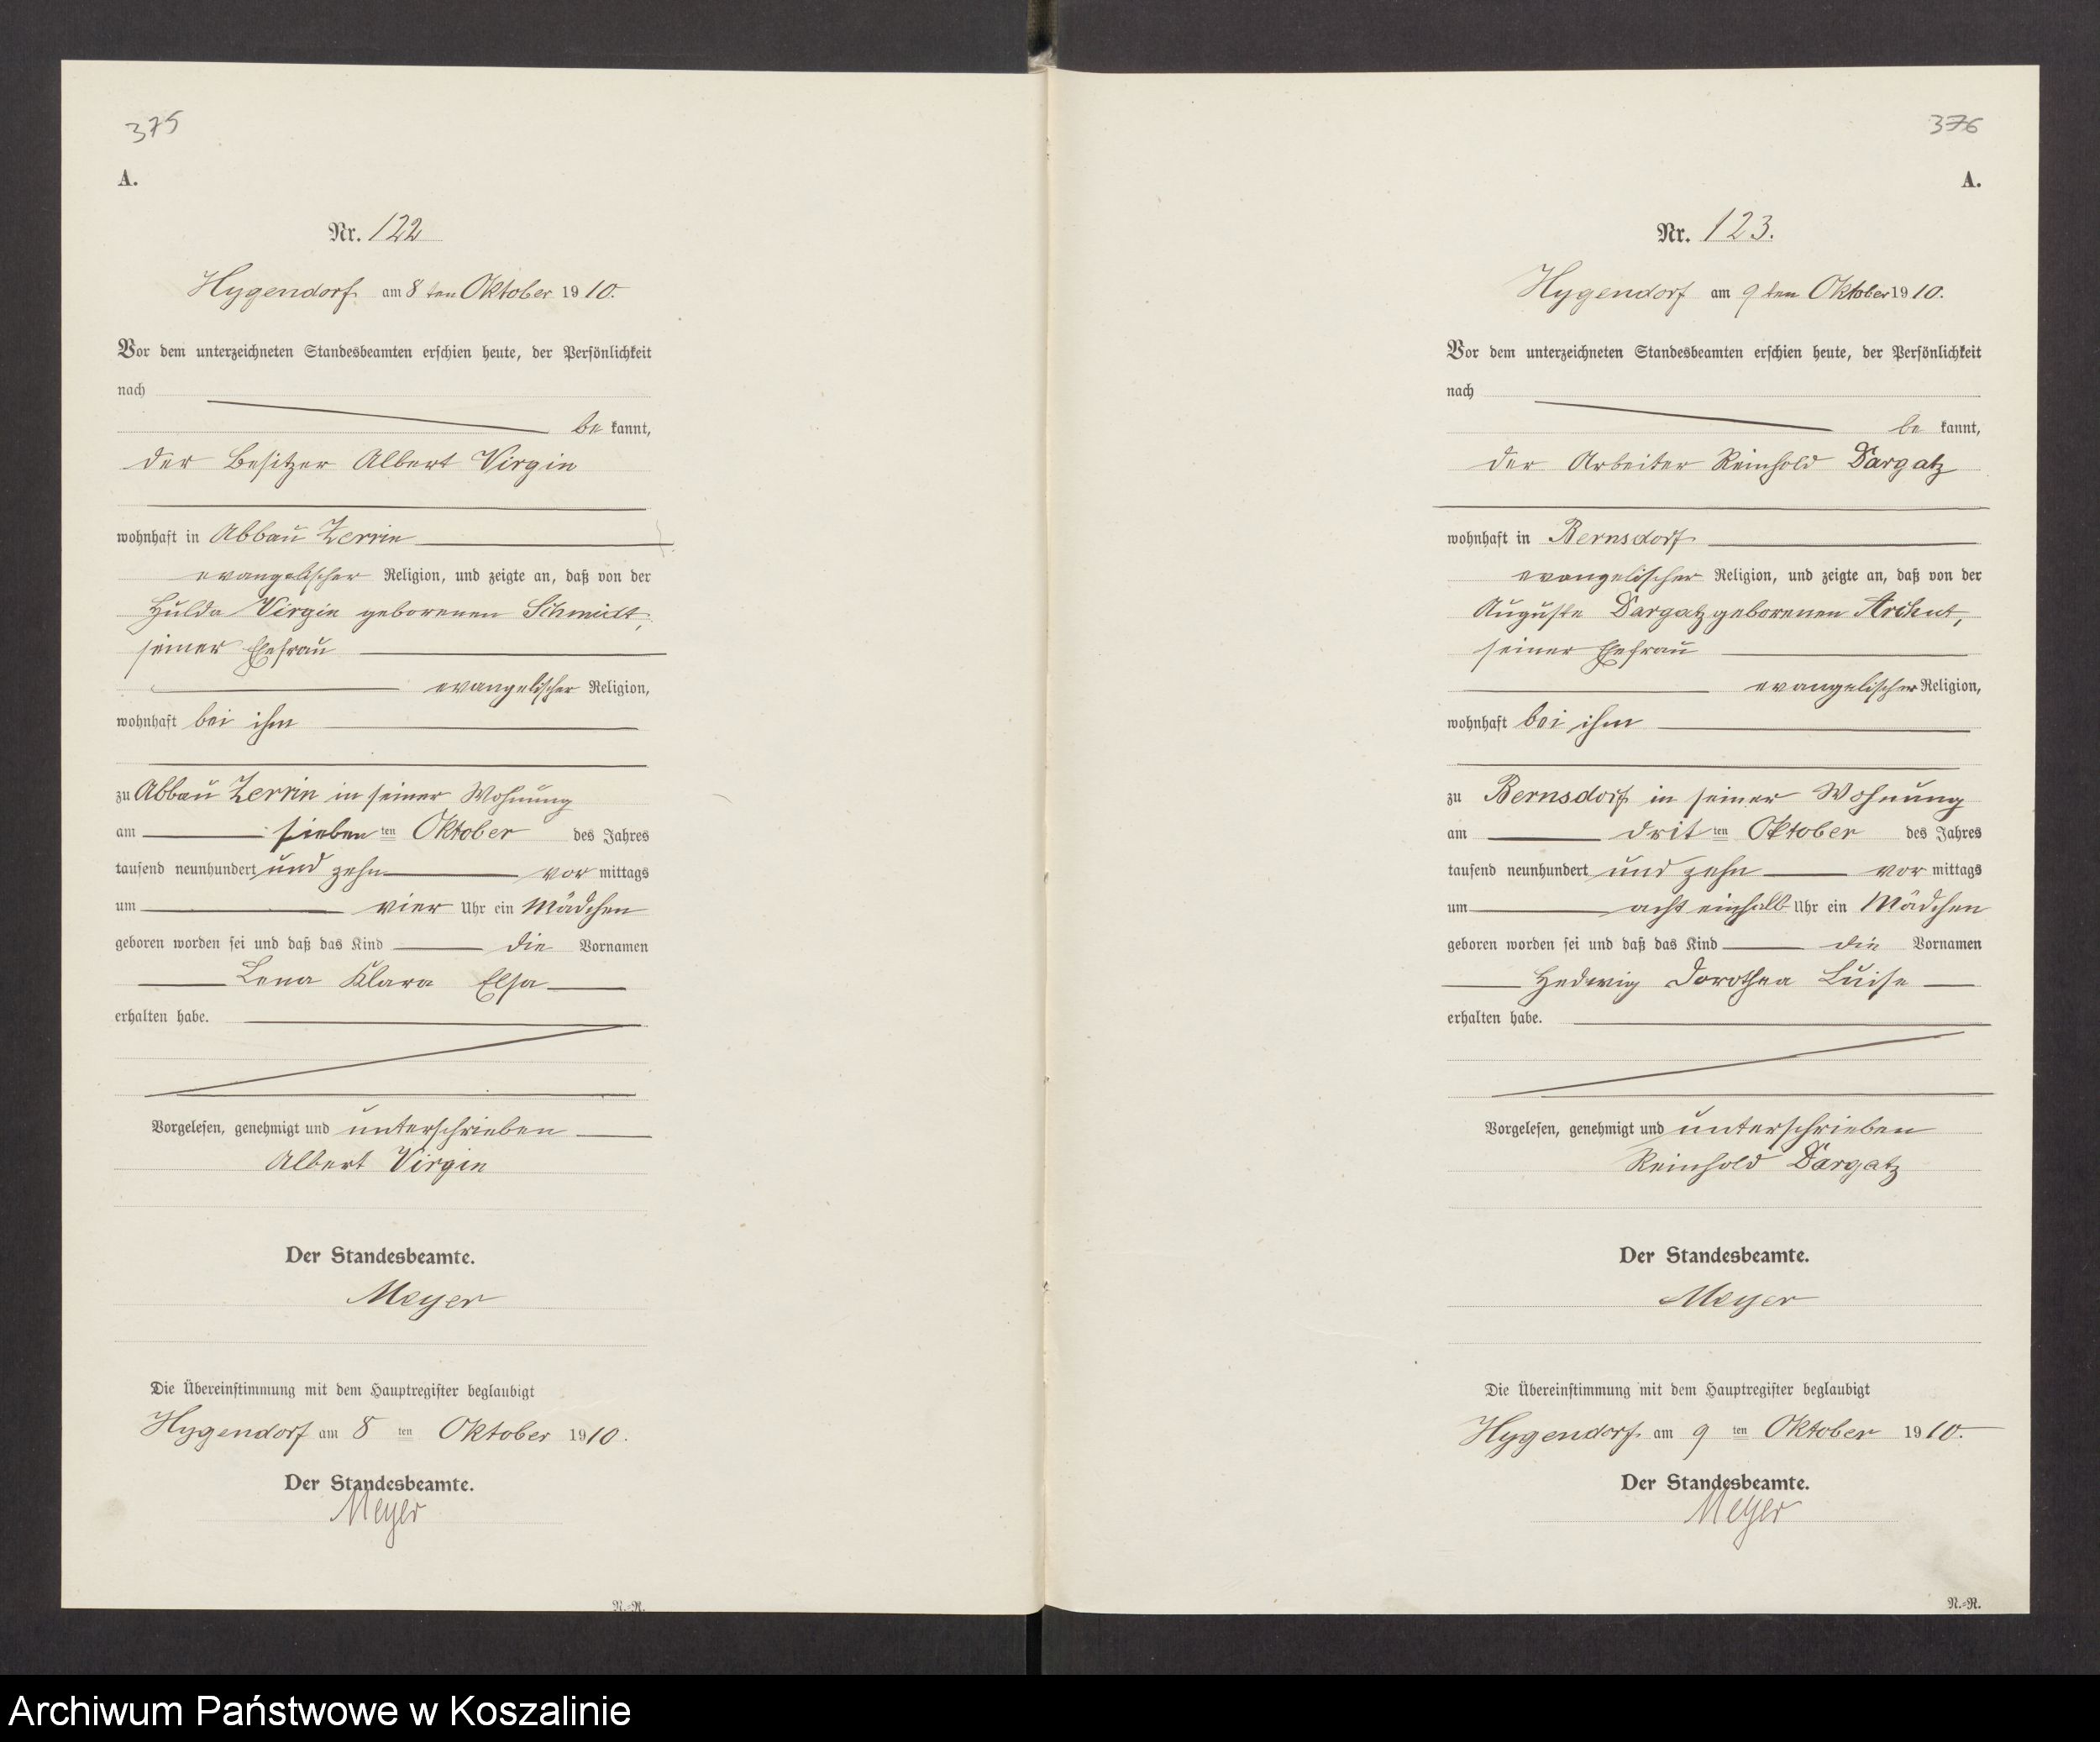 375
A.
Nr. 122
Hygendorf am 8 ten Oktober 1910.
Vor dem unterzeichneten Standesbeamten erschien heute, der Persönlichkeit
nach
be kannt,
der Besitzer Albert Virgin
wohnhaft in Abbau Zerrin
evangelischer Religion, und zeigte an, daß von der
Hulda Virgin geborenen Schmidt,
seiner Ehefrau
evangelischer Religion,
wohnhaft bei ihm
zu Abbau Zerrin in seiner Wohnung
am sieben ten Oktober des Jahres
tausend neunhundert und zehn vor mittags
um vier Uhr ein Mädchen
geboren worden sei und daß das Kind die Vornamen
Lena Klara Elsa
erhalten habe.
Vorgelesen, genehmigt und unterschrieben
Albert Virgin
Der Standesbeamte.
Meyer
Die Übereinstimmung mit dem Hauptregister beglaubigt
Hygendorf am 8 ten Oktober 1910.
Der Standesbeamte.
Meyer
N.=R.
376
A.
Nr. 123.
Hygendorf am 9 ten Oktober 1910.
Vor dem unterzeichneten Standesbeamten erschien heute, der Persönlichkeit
nach
be kannt,
der Arbeiter Reinhold Dargatz
wohnhaft in Bernsdorf
evangelischer Religion, und zeigte an, daß von der
Auguste Dargatz geborenen Arndt,
seiner Ehefrau
evangelischer Religion,
wohnhaft bei ihm
zu Bernsdorf in seiner Wohnung
am drit ten Oktober des Jahres
tausend neunhundert und zehn vor mittags
um acht einhalb Uhr ein Mädchen
geboren worden sei und daß das Kind die Vornamen
Hedwig Dorothea Luise
erhalten habe.
Vorgelesen, genehmigt und unterschrieben
Reinhold Dargatz
Der Standesbeamte.
Meyer
Die Übereinstimmung mit dem Hauptregister beglaubigt
Hygendorf am 9 ten Oktober 1910.
Der Standesbeamte.
Meyer
N.=R.
Archiwum Państwowe w Koszalinie